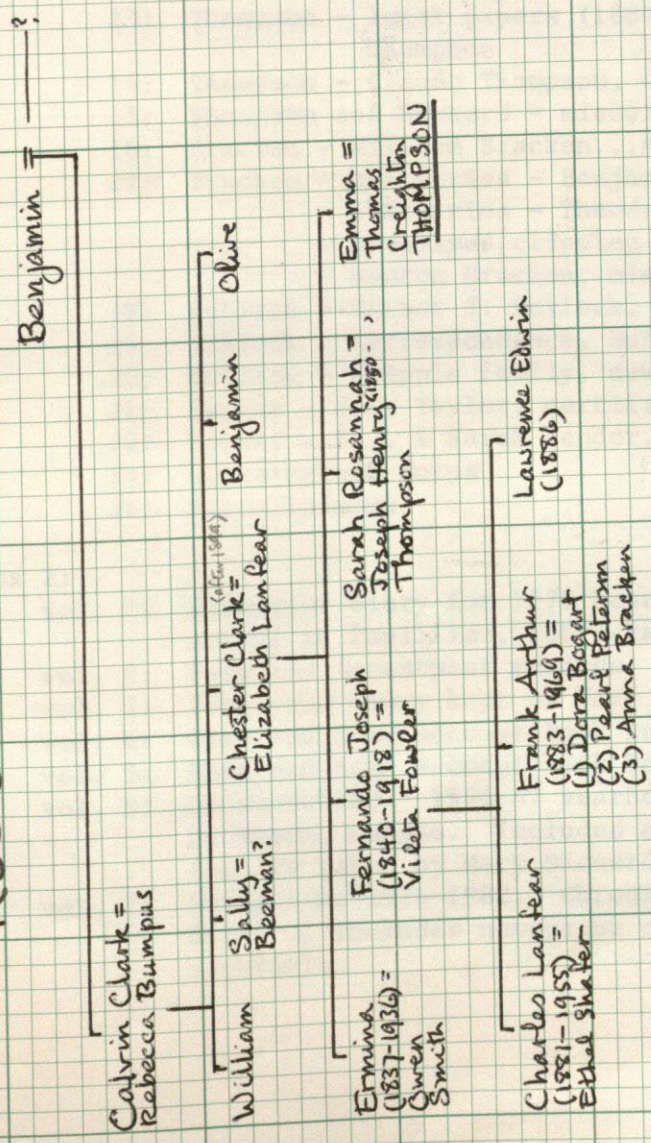 Benjamin = ?
Calvin Clark =
Rebecca Bumpus
William
Sally =
Beeman?
Chester Clark =
Elizabeth Lanfear
Benjamin
Olive
Ermina
(1837-1936) =
Owen
Smith
Fernando Joseph
(1840-1918) =
Vileta Fowler
Sarah Rosannah =
Joseph Henry
Thompson
Emma =
Thomas
Creighton
THOMPSON
Charles Lanfear
(1881-1955) =
Ethel Shafer
Frank Arthur
(1883-1969) =
(1) Dora Bogart
(2) Pearl Peterson
(3) Anna Bracken
Lawrence Edwin
(1886)